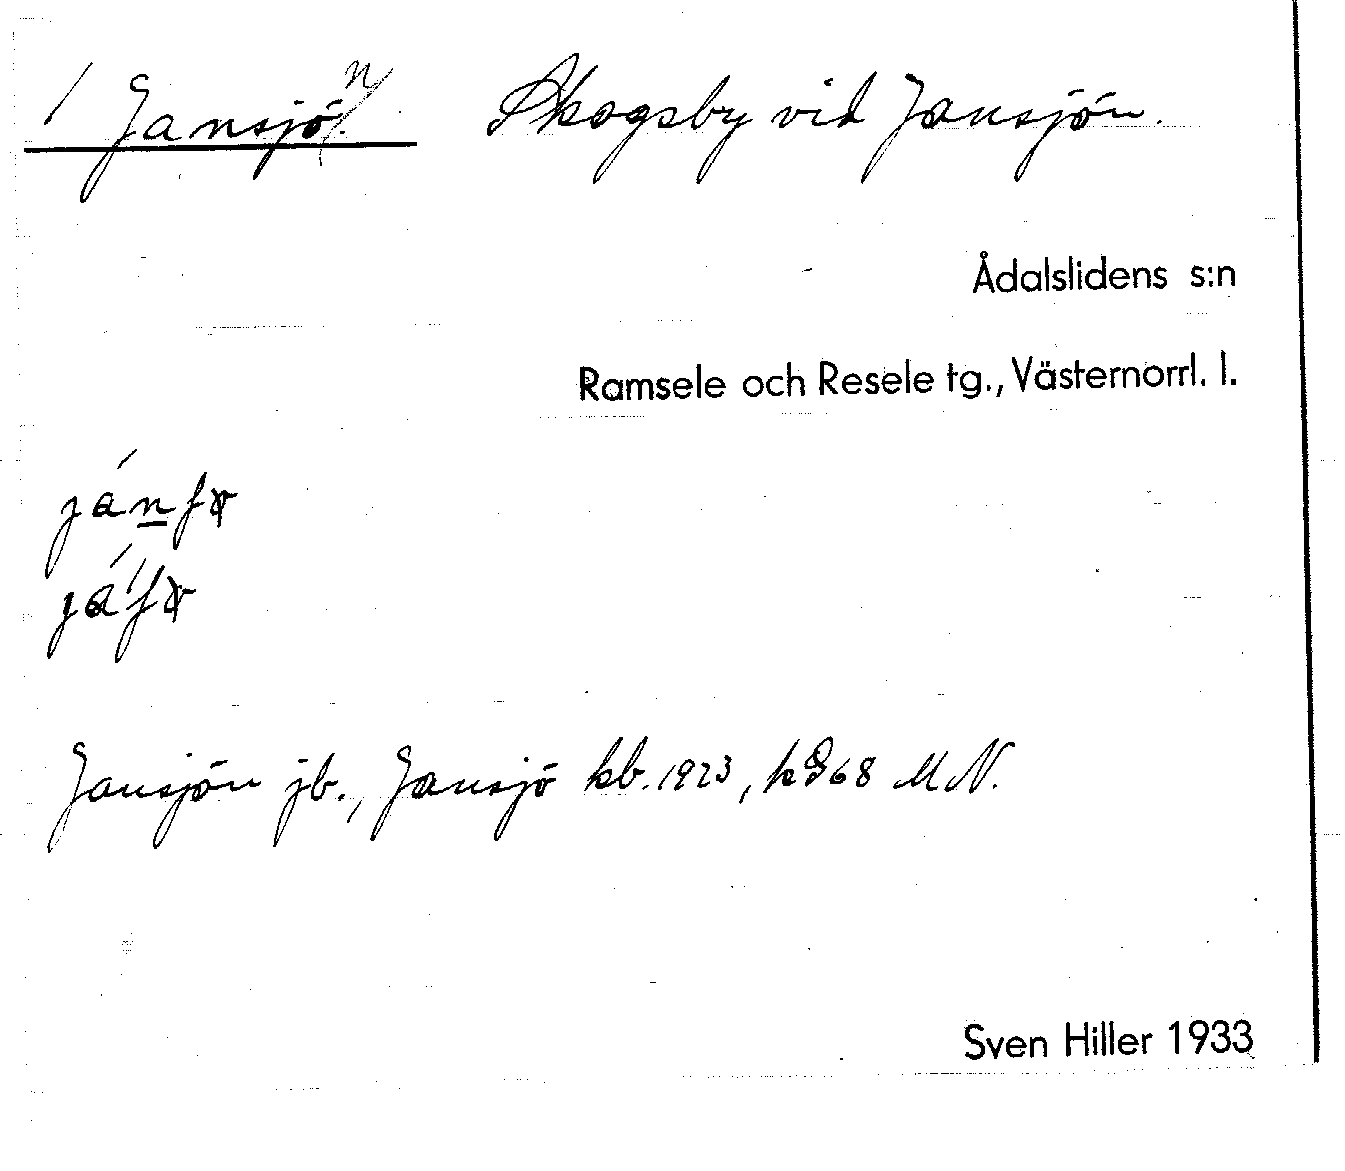 / Jansjön. Skogsby vid Jansjön.
Ådalslidens s:n
Ramsele och Resele tg., Västernorrl. l.
Jansjön jb., Jansjö kb. 1923, k 68 MN.
Sven Hiller 1933